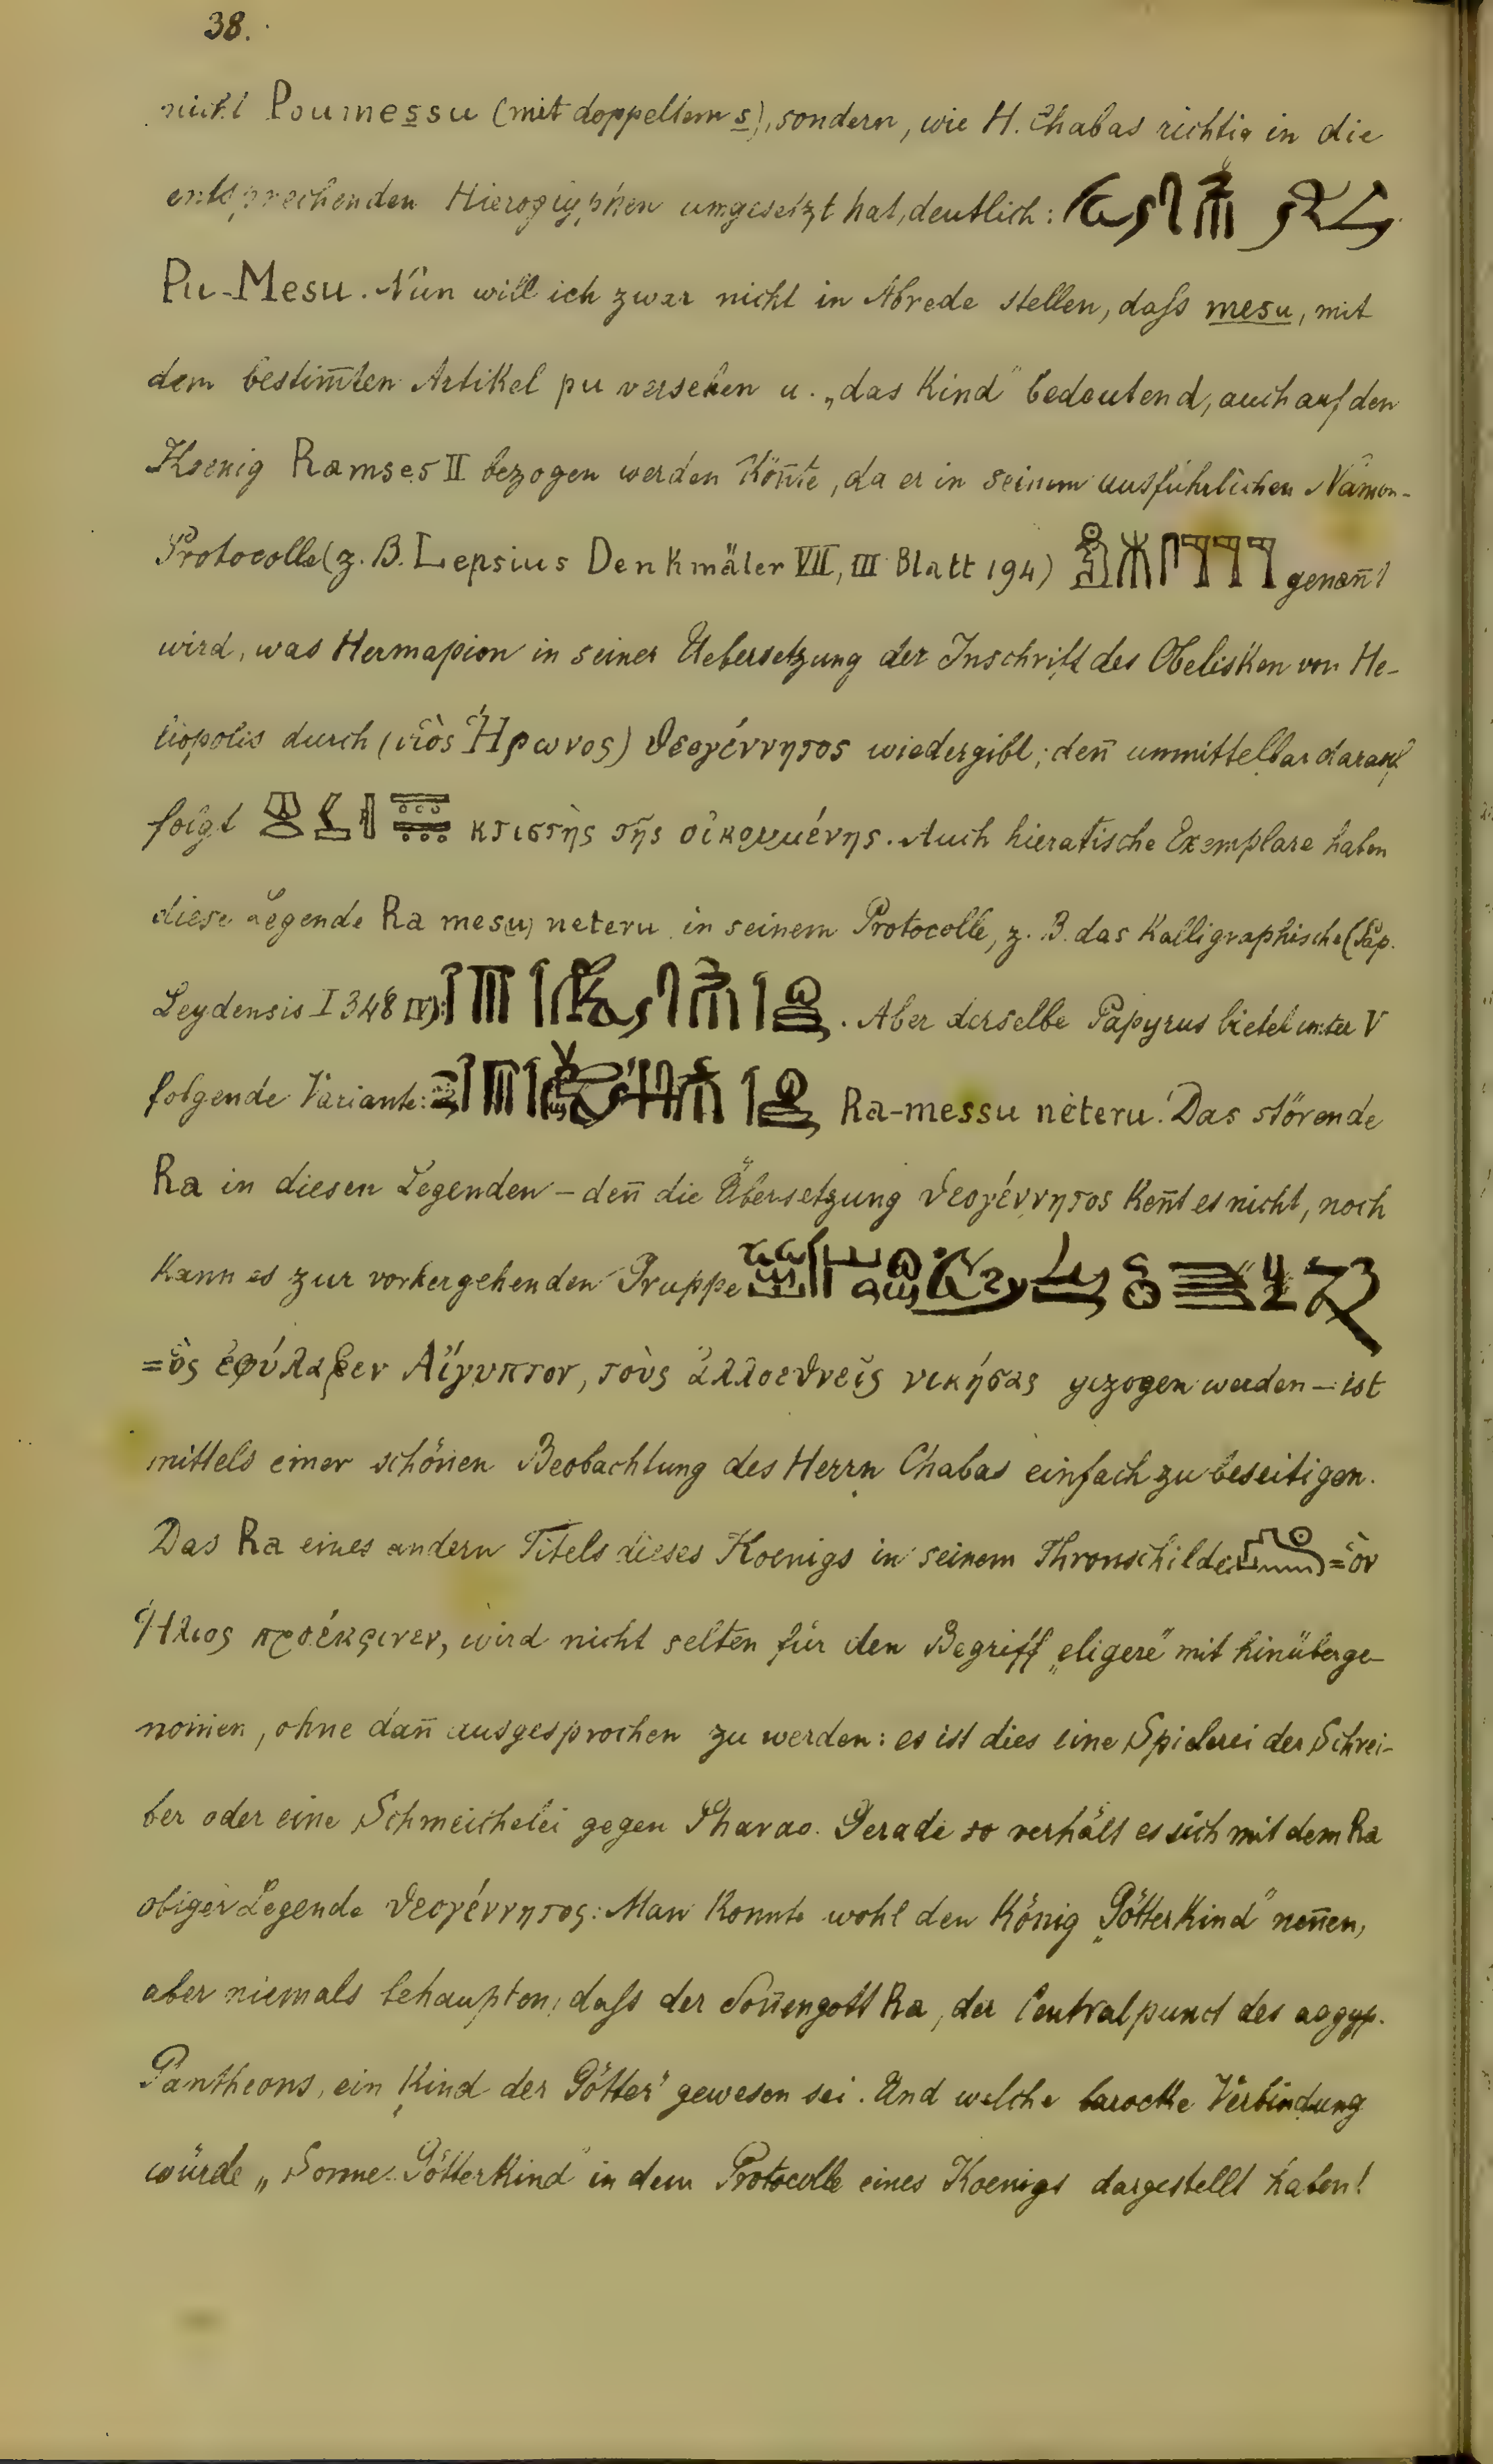 38.
nicht Poumessu (mit doppeltem s), sondern, wie H. Chabas richtig in die
entsprechenden Hieroglyphen umgesetzt hat, deutlich:
Pu-Mesu. Nun will ich zwar nicht in Abrede stellen, daſs mesu, mit
dem bestim̄ten Artikel pu versehen u. „das Kind“ bedeutend, auch auf den
Koenig Ramses II bezogen werden kön̄te, da er in seinem ausführlichen Namen-
Protocolle (z. B. Lepsius Denkmäler VII, III Blatt 194) genan̄t
wird, was Hermapion in seiner Uebersetzung der Inschrift des Obelisken von He-
liopolis durch (υἱὸς Ἥρωνος) θεογέννητος wiedergibt; den̄ unmittelbar darauf
folgt κτιστὴς τῆς οἰκουμένης. Auch hieratische Exemplare haben
diese Legende Ra mesu neteru in seinem Protocolle, z. B. das Kalligraphische (Pap.
Leydensis I 348 IV): . Aber derselbe Papyrus bietet unter V
folgende Variante: Ra-messu neteru. Das störende
Ra in diesen Legenden – den̄ die Übersetzung θεογέννητος ken̄t es nicht, noch
kann es zur vorhergehenden Gruppe
=ὃς ἐφύλαξεν Αἴγυπτον, τοὺς ἀλλοεθνεῖς νικήσας gezogen werden – ist
mittels einer schönen Beobachtung des Herrn Chabas einfach zu beseitigen.
Das Ra eines andern Titels dieses Koenigs in seinem Thronschilde =ὃν
Ἥλιος προέκρινεν, wird nicht selten für den Begriff „eligere“ mit hinüberge-
nom̄en, ohne dan̄ ausgesprochen zu werden: es ist dies eine Spielerei der Schrei-
ber oder eine Schmeichelei gegen Pharao. Gerade so verhält es sich mit dem Ra
obiger Legende θεογέννητος: Man konnte wohl den König „Götterkind“ nen̄en,
aber niemals behaupten, daſs der Son̄engott Ra, der Centralpunct des aegyp.
Pantheons, ein „Kind der Götter“ gewesen sei. Und welche barocke Verbindung
würde „Sonne-Götterkind“ in dem Protocolle eines Koenigs dargestellt haben!